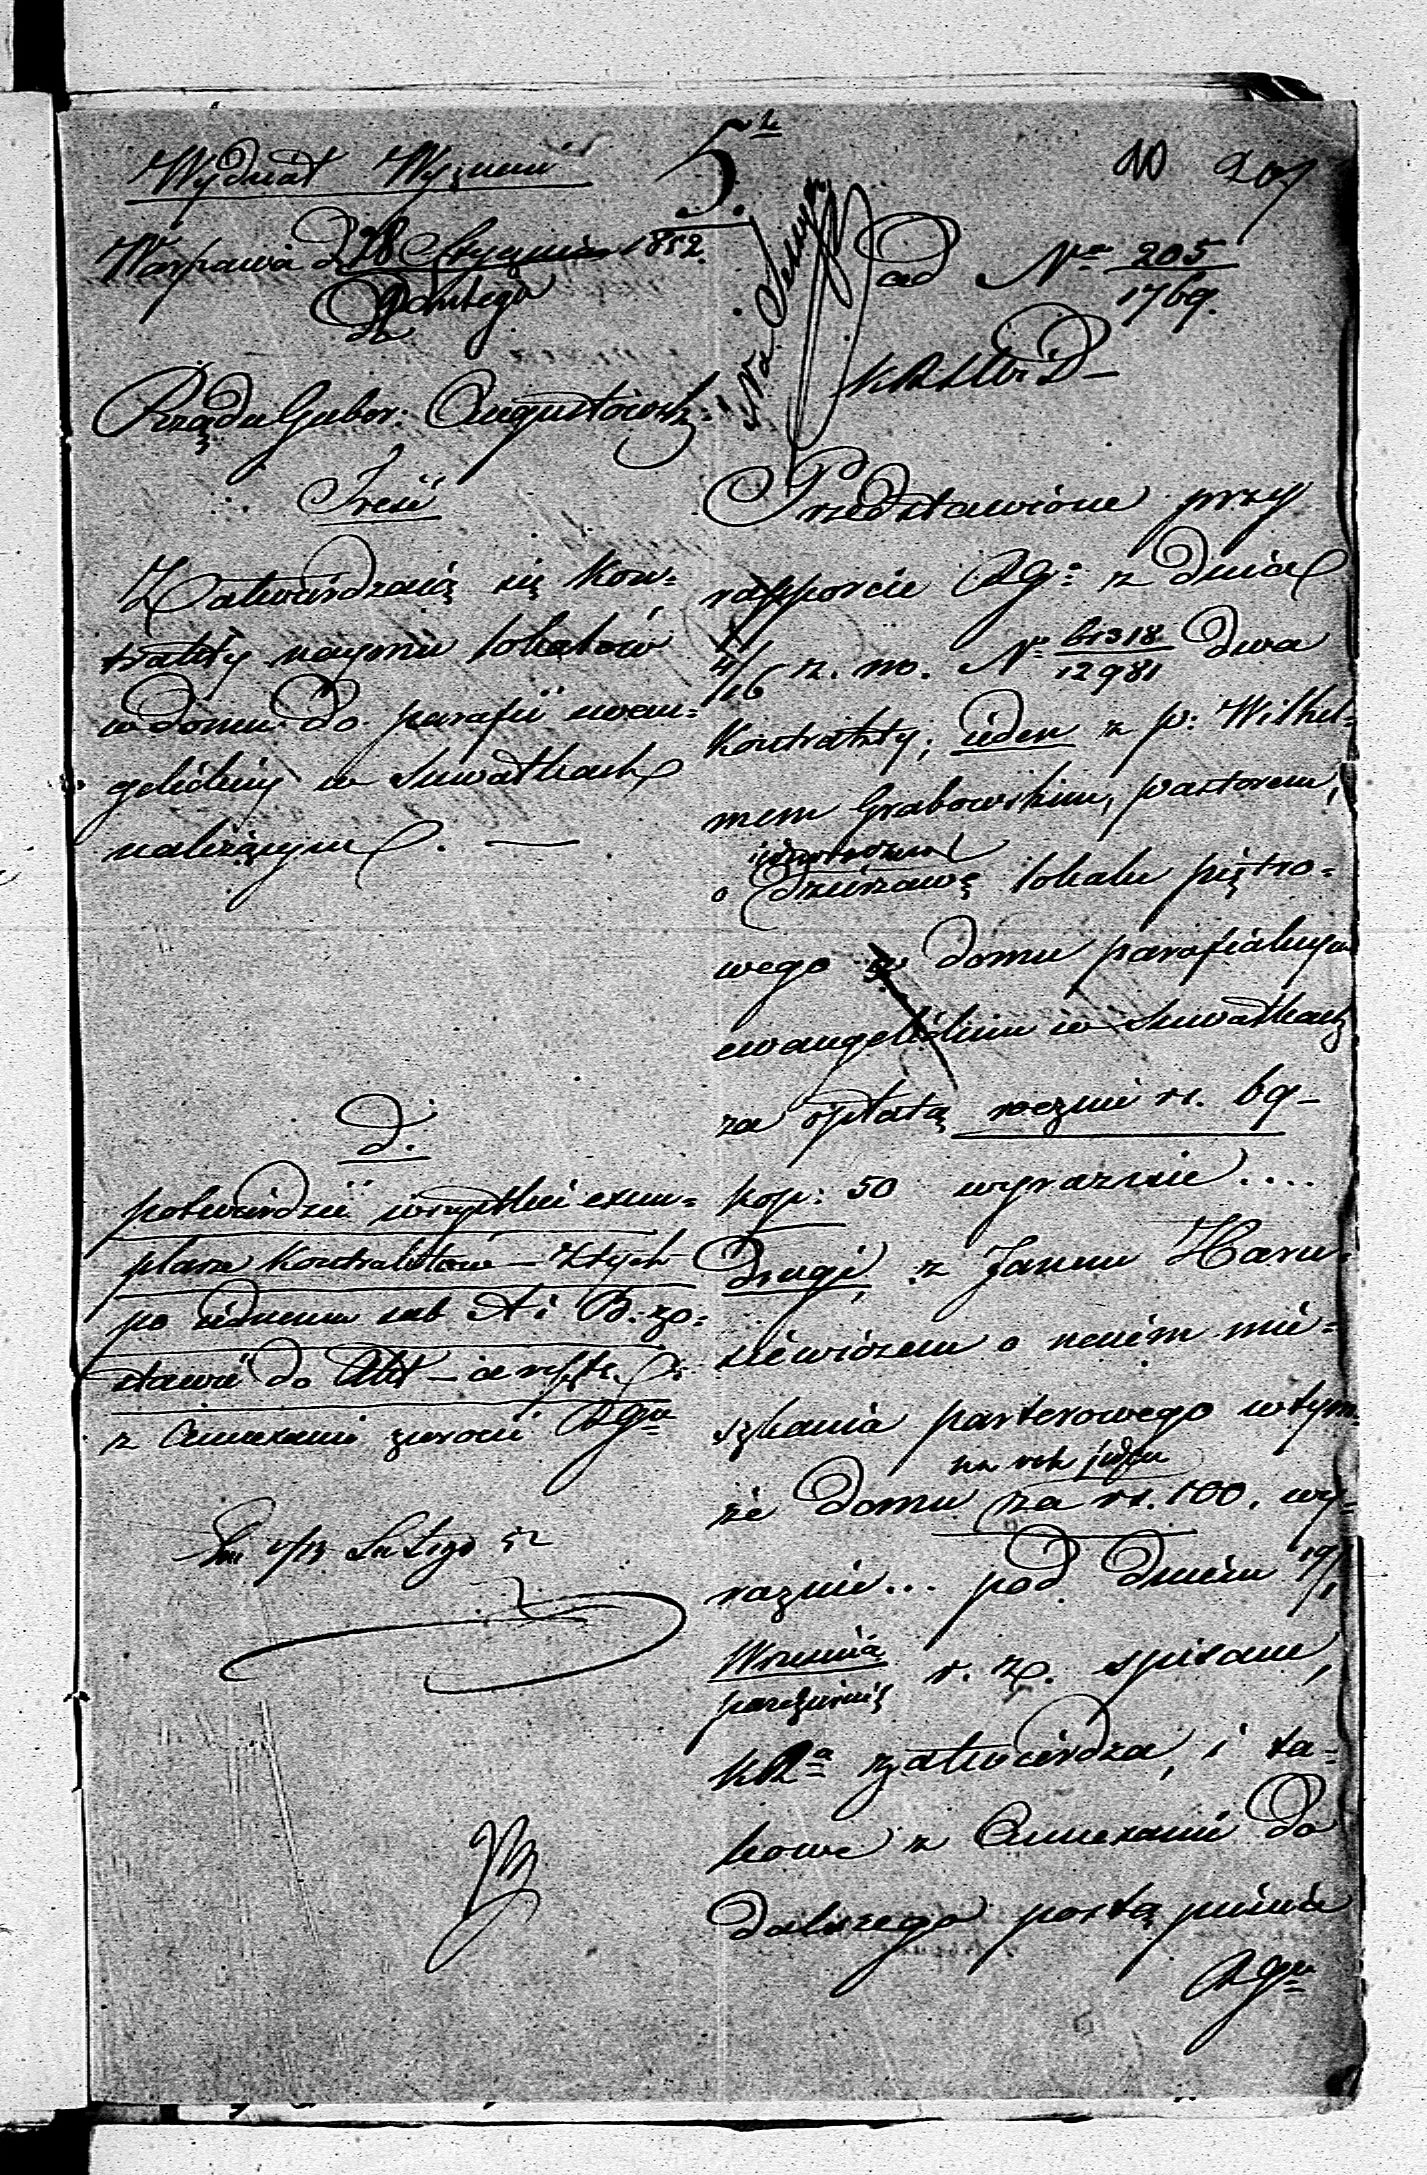 Wydział Wyznań
5.
10 207
Warszawa d. 28 Stycznia 1852.
9 Lutego
ad No 205
1769.
Rządu Guber: Augustowsk:
KRSWiD
Treść
Zatwierdzaią się kon=
trakty naymu lokalów
w domu do parafii ewan=
gelickiey w Suwałkach
należącym. —
D.
potwierdzić wszystkie exem=
plarze kontraktów – z tych
po iednemu sub A i B. zo=
stawić do Akt – a resztę
z Annexami zwrócić RGu
dn. 1/13 Lutego 52
Przedstawione przy
rapporcie RGo z dnia
4/16 z. m. No 61318/12981 dwa
kontrakty, ieden z p: Wilhel=
mem Grabowskim, pastorem,
o dzierżawę lokalu piętro=
wego w domu parafialnym
ewangelickim w Suwałkach
za opłatą rocznie rs. 69
kop: 50 wyraznie ....
drugi, z Janem Haru=
siewiczem o naiem mie=
szkania parterowego w tym=
na rok jeden
że domu za rs. 100. wy=
raznie... pod dniem 19/1
Września
Października
r. z. spisane,
KRa zatwierdza, i ta=
kowe z Annexami do
dalszego postąpienia
RGu